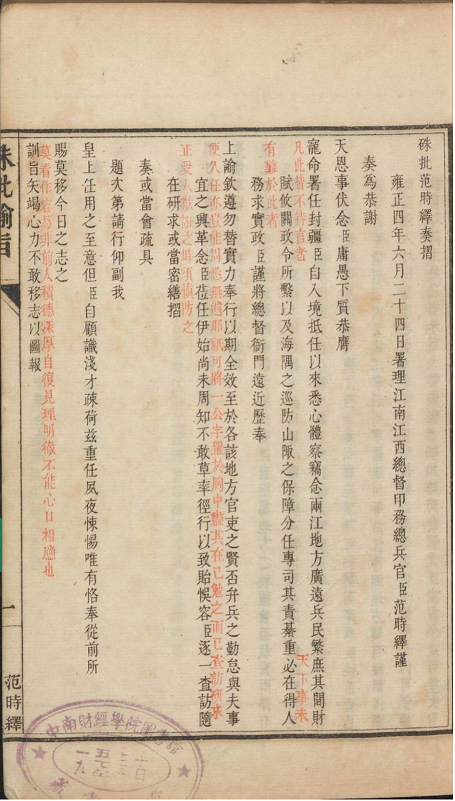 硃批范時繹奏摺
雍正四年六月二十四日署理江南江西總督印務總兵官臣范時繹謹
奏爲恭謝
天恩事伏念臣庸愚下質恭膺
寵命署任封疆臣自入境抵任以來悉心體察竊念兩江地方廣遠兵民繁庶其間財
天下事未
凡此皆不待言者
賦攸關政令所繫以及海隅之巡防山陬之保障分任專司其責綦重必在得人
有難於此者
務求實政臣謹將總督衙門遠近歷奉
上諭欽遵勿替實力奉行以期全效至於各該地方官吏之賢否弁兵之勤怠與夫事
便久任亦豈能周悉無遺耶祇可將一公字置於胸中盡其在己勉之而已查訪研求
宜之興革念臣莅任伊始尚未周知不敢草率徑行以致貽悞容臣逐一查訪隨
正受人欺誑之時須愼防之
在研求或當密繕摺
奏或當會疏具
題次第請行仰副我
皇上任用之至意但臣自顧識淺才疎荷兹重任夙夜悚惕唯有恪奉從前所
賜莫移今日之志之
莫看作容易非前人積德深學自復見理明徹不能心口相應也
訓旨矢竭心力不敢移志以圖報
硃批諭旨
一
范時繹
中南財經學院圖書館
一九五七